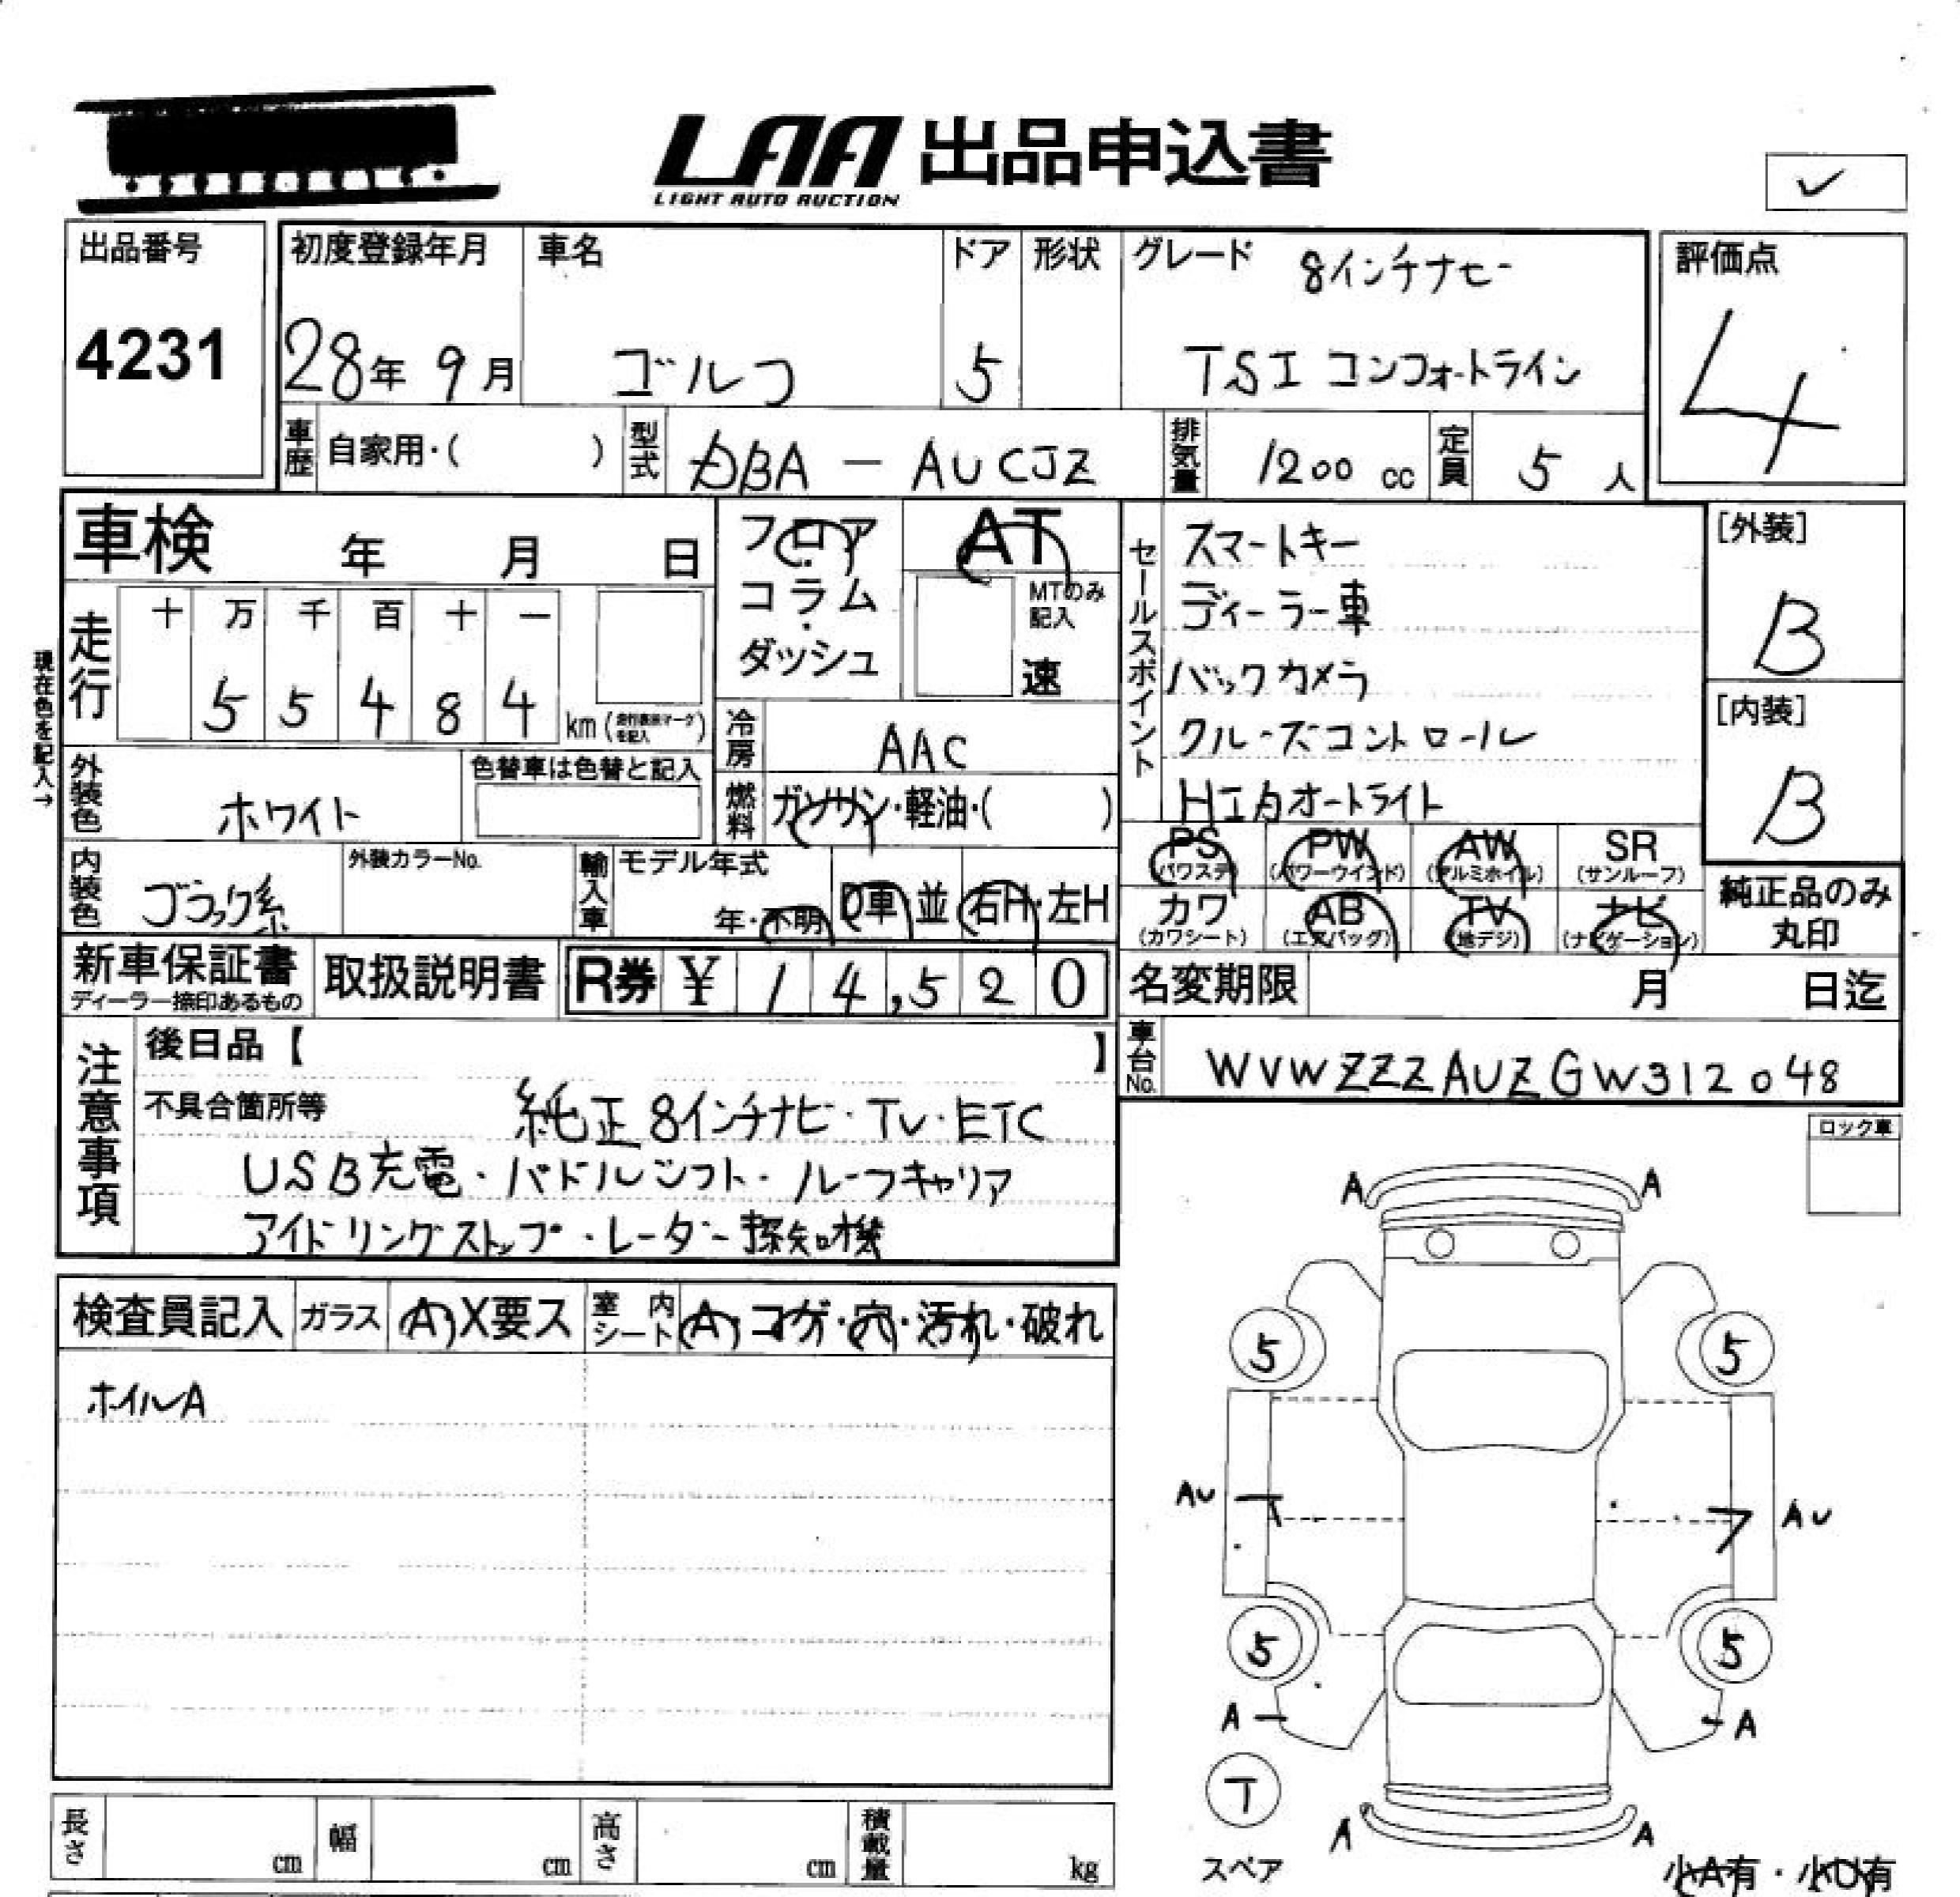 LAA 出品申込書
LIGHT AUTO AUCTION
✓
出品番号
4231
初度登録年月
28年 9月
車名
ゴルフ
ドア
5
形状
グレード
8インチナビー
TSI コンフォートライン
評価点
4
車歴
自家用・( )
型式
DBA - AUCJZ
排気量
1200 cc
定員
5 人
車検 年 月 日
フロア・コラム・ダッシュ
AT
MTのみ記入
速
現在色を記入→
走行
十 万 千 百 十 一
5 5 4 8 4
km(走行表示マークを記入)
冷房
AAC
燃料
ガソリン・軽油・( )
セールスポイント
スマートキー
ディーラー車
バックカメラ
クルーズコントロール
HIDオートライト
[外装]
B
[内装]
B
外装色
ホワイト
色替車は色替と記入
内装色
ブラック系
外装カラーNo.
輸入車
モデル年式
年・不明
D車 並
右H・左H
PS (パワステ)
PW (パワーウインド)
AW (アルミホイル)
SR (サンルーフ)
カワ (カワシート)
AB (エアバッグ)
TV (地デジ)
ナビ (ナビゲーション)
純正品のみ丸印
新車保証書
ディーラー捺印あるもの
取扱説明書
R券 ¥ 14,520
名変期限 月 日迄
注意事項
後日品【 】
不具合箇所等
純正8インチナビ・TV・ETC
USB充電・パドルシフト・ルーフキャリア
アイドリングストップ・レーダー探知機
車台No.
WVWZZZAUZGW312048
ロック車
検査員記入
ガラス
A X要ス
室内シート
A・コゲ・穴・汚れ・破れ
ホイルA
A A
5 5
AU AU
5 5
A A
T
スペア
A A
小A有・小U有
長さ cm
幅 cm
高さ cm
積載量 kg